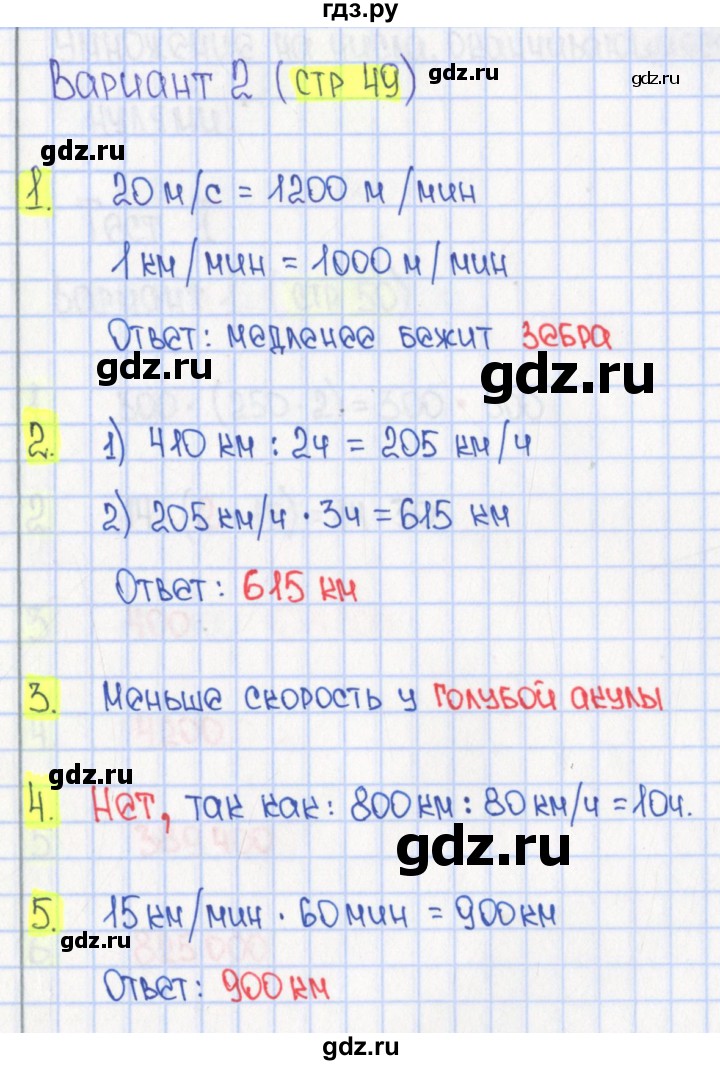 гдз.ру
Вариант 2 (стр 49)
gdz.ru
gdz.ru
gdz.ru
1. 20 м/с = 1200 м/мин
1 км/мин = 1000 м/мин
Ответ: медленее бежит зебра
gdz.ru
gdz.ru
2. 1) 410 км : 2ч = 205 км/ч
2) 205 км/ч · 3ч = 615 км
gdz.ru
Ответ: 615 км
3. Меньше скорость у голубой акулы
gdz.ru
4. Нет, так как: 800 км : 80 км/ч = 10ч.
gdz.ru
5. 15 км/мин · 60 мин = 900 км
gdz.ru
Ответ: 900 км
gdz.ru